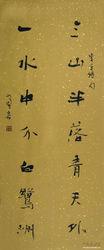 三山半落青天外
一水中分白鷺洲